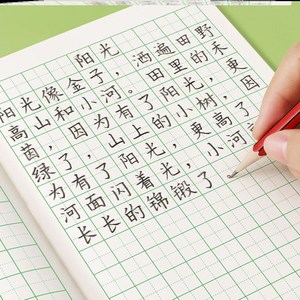 阳光
阳光像金子，洒遍田野
高山和小河。田里的禾
苗，因为有了阳光，更
绿了，山上的小树，因
为有了阳光，更高了
河面闪着光，小河就
长长的锦锻了